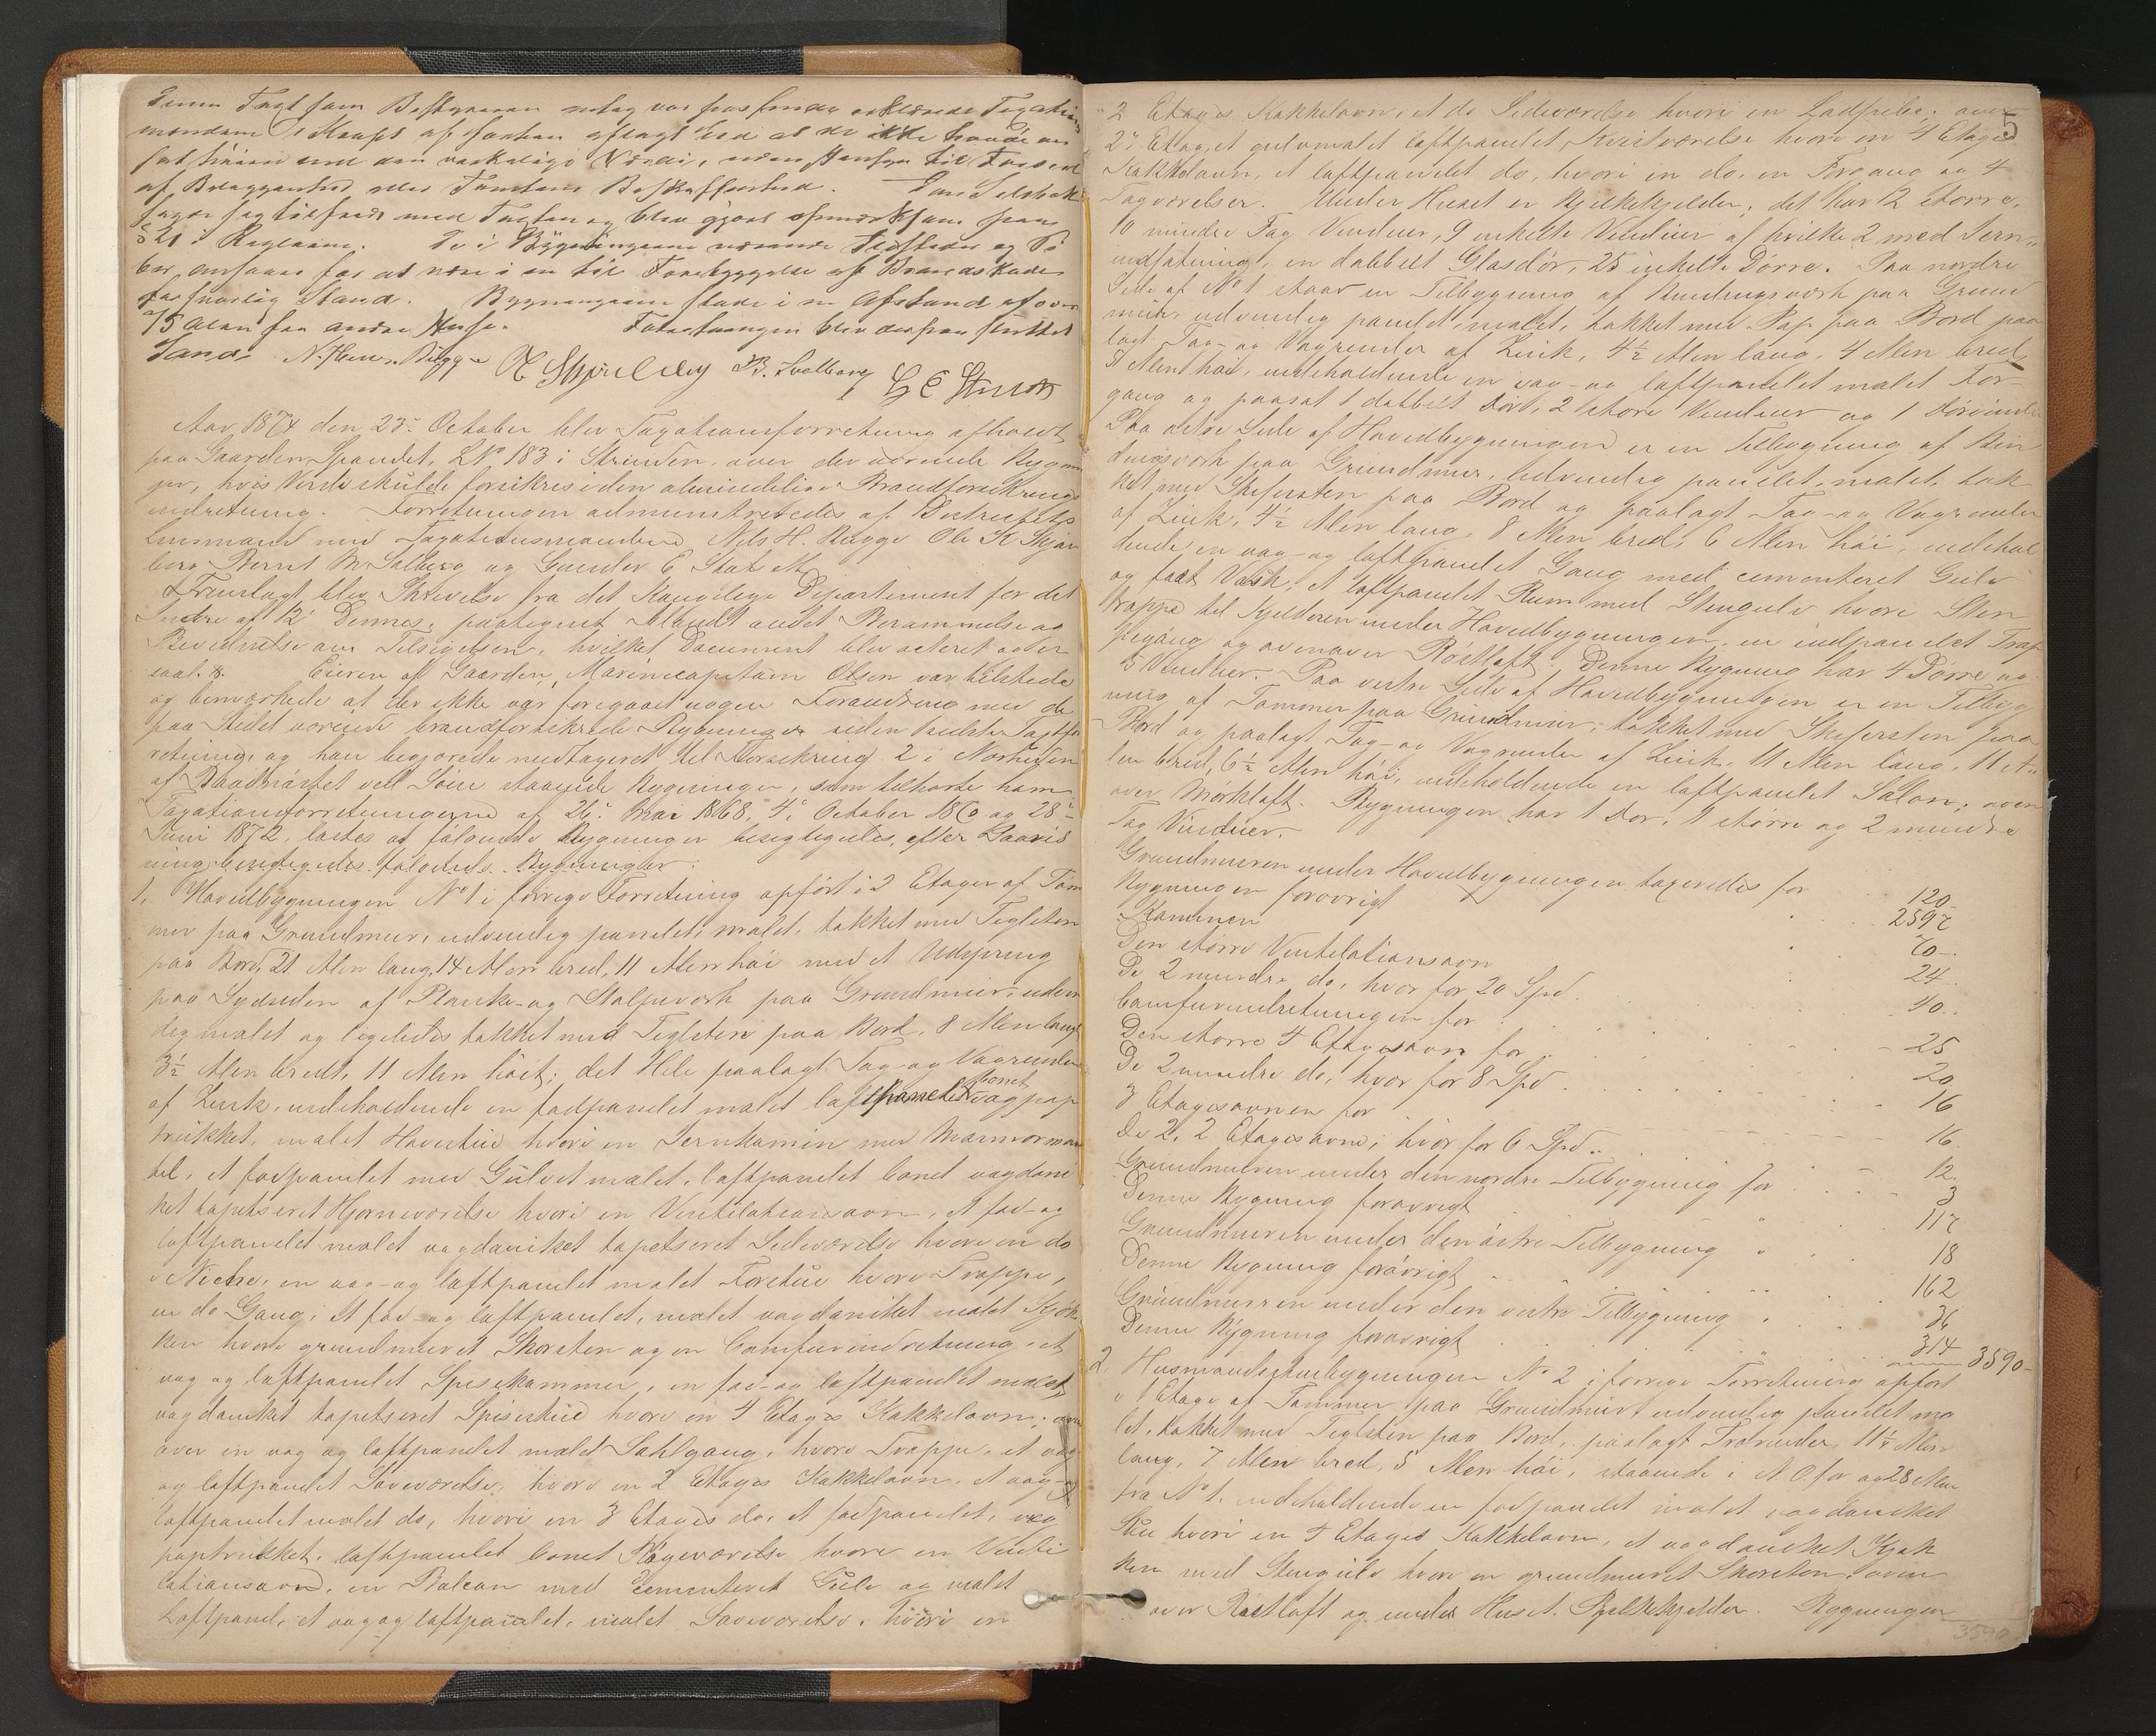 denne Taxt som Bestyreren
mændene i Kraft af
af Beliggenhed eller Tomtens Beskaffenhed.
med Taxten og blev gjort opmærksom paa
§ 21 i Reglerne. De i Bygningerne værende Ildsteder og
ber ansaaes for at være i en til Forebyggelse af Brandskade
forsvarlig Stand. Bygningerne staae i en Afstand af over
75 Alen fra andre Huse. Forretningen blev derpaa sluttet
N. Henr. Bügge
Aar 1874 den 23de October blev Taxationsforretning afholdt
paa Gaarden Spandet, L No 183 i Strinden, over der værende Bygnin
ger, hvis Værdi skulde forsikres i den almindelige Brandforsikrings
indretning. Forretningen administreredes af Districtets
Lensmand med Taxationsmændene Nils H. Bugge Ole K Skjøl
berg Bernt M Solberg og Gunder E Stut
Fremlagt blev Skrivelse fra det Kongelige Departement for det
Indre af 12 Dennes, paategnet blandt andet Berammelse og
Bevidnelse om Tilsigelsen, hvilket Document blev acteret og er
saal. Eieren af Gaarden, Marinecapitain Olsen var tilstede
og bemærkede at der ikke var foregaaet nogen Forandring med de
paa Stedet værende brandforsikrede Bygninger siden sidste Taxtfor
retning, og han begjærede medtaget til Forsikring 2 i Nærheden
af Baadnøstet ved Søen staaende Bygninger, som tilhørte ham.
Taxationsforretningerne af 26de Mai 1868, 4de October 1860 og 28de
Juni 1872, læstes og følgende Bygninger besigtigedes, efter
ning besigtigedes følgende Bygninger:
1. Hovedbygningen No 1 i forrige Forretning opført i 2 Etager af Tøm
mer paa Grundmur, udvendig panelet, malet, takket med Teglsten
paa Bord, 21 Alen lang, 14 Alen bred, 11 Alen høi med et Udspring
paa Sydsiden af Planke- og Stolpeverk paa Grundmur, udven
dig malet og ligeledes takket med Teglsten paa Bord, 8 Alen langt
3½ Alen bredt, 11 Alen høit; det Hele paalagt Tag- og Vagrender
af Zink, indeholdende en fodpanelet malet loftpanelet bonet vægpap
trukket, malet Havestue hvori en Jernkamin med Marmorman
tel, et fodpanelet med Gulvet malet, loftpanelet bonet vægdani
ket tapetseret Hjørneværelse hvori en Ventilationsovn, et fod- og
loftpanelet malet vægdaniket tapetseret Sideværelse hvori en do
i Niche, en væg- og loftpanelet malet Forstue hvori Trappe,
en do Gang, et fod- og loftpanelet, malet vægdaniket malet Kjøk
ken hvori grundmuret Skorsten og en Comfurindretning, et
væg og loftpanelet Spisekammer, en fod- og loftpanelet malet
vægdaniket tapetseret Spisestue hvori en 4 Etages Kakkelovn; oven
over en væg og loftpanelet malet Sahlgang, hvori Trappe, et væg
og loftpanelet Soveværelse, hvori en 2 Etages Kakkelovn, et væg- og
loftpanelet malet do, hvori en 3 Etages do, et fodpanelet, væg
paptrukket, loftpanelet bonet Hageværelse hvori en Venti
lationsovn, en Balcon med cementeret Gulv og malet
Loftpanel, et væg og loftpanelet, malet Soveværelse, hvori en
5
2 Etages Kakkelovn, et do Sideværelse hvori en Ladspeile; oven
2de Etage, et gulvmalet loftpanelet Kvistværelse hvori en 4 Etages
Kakkelovn, et loftpanelet do, hvori en do, en Forgang og 4
Tagværelser. Under Huset er Bjelkekjelder; det har 12 større,
10 mindre Fag Vinduer, 9 enkelte Vinduer af hvilke 2 med Jern
indfatning, en dobbelt Glasdør, 25 enkelte Dørre. Paa nordre
Side af No 1 staar en Tilbygning af Bindingsverk paa Grund
mur, udvendig panelet, malet, takket med Pap paa Bord paa
lagt Tag- og Vagrender af Zink, 4½ Alen lang, 4 Alen bred,
5 Alen høi, indeholdende en væg- og loftpanelet malet For-
gang og paasat 1 dobbelt Dør, 2 større Vinduer og 1 Dørvindue
Paa østre Side af Hovedbygningen er en Tilbygning af Bin
dingsverk paa Grundmur, udvendig panelet, malet, tak
ket med Skifersten paa Bord og paalagt Tag- og Vagrender
af Zink, 4½ Alen lang, 8 Alen bred, 6 Alen høi, indehol
dende en væg- og loftpanelet Gang med cementeret Gulv
og fast Vask, et loftpanelet Rum med Stengulv hvori Sten
trappe til Kjelderen under Hovedbygningen, en indpanelet Trap
pegang og ovenover Røstloft. Denne Bygning har 4 Dørre og
5 Vinduer. Paa vestre Side af Hovedbygningen er en Tilbyg
ning af Tømmer paa Grundmur, takket med Skifersten paa
Bord og paalagt Tag- og Vagrender af Zink, 11 Alen lang, 11 A-
len bred, 6½ Alen høi, indeholdende en loftpanelet Salon; oven
over Mørkloft. Bygningen har 1 Dør, 1 større og 2 mindre
Fag Vinduer.
Grundmuren under Hovedbygningen taxeredes for 120
Bygningen forøvrigt 2592
Kaminen 60
Den større Ventilationsovn 24
De 2 mindre do, hver for 20 Spd. 40
Comfurindretningen for 25
Den større 4 Etagesovn for 20
De 2 mindre do, hver for 8 Spd. 16
3 Etagesovnen for 16
De 2, 2 Etagesovne, hver for 6 Spd. 12
Grundmuren under den nordre Tilbygning for 3
Denne Bygning forøvrigt 117
Grundmuren under den østre Tilbygning 18
Denne Bygning forøvrigt 162
Grundmuren under den vestre Tilbygning 36
Denne Bygning forøvrigt 314 3590
2. Husmandsstuebygningen No 2 i forrige Forretning opført
i 1 Etage af Tømmer paa Grundmur, udvendig panelet ma
let, takket med Teglsten paa Bord, paalagt Trærender, 11½ Alen
lang, 7 Alen bred, 5 Alen høi, staaende i N.O. for og 28 Alen
fra No 1, indeholdende en fodpanelet malet vægdaniket
Stue hvori en 4 Etages Kakkelovn, et vægdaniket Kjøk
ken med Stengulv hvori en grundmuret Skorsten, oven
over Røstloft og under Huset Bjelkekjelder. Bygningen
3590